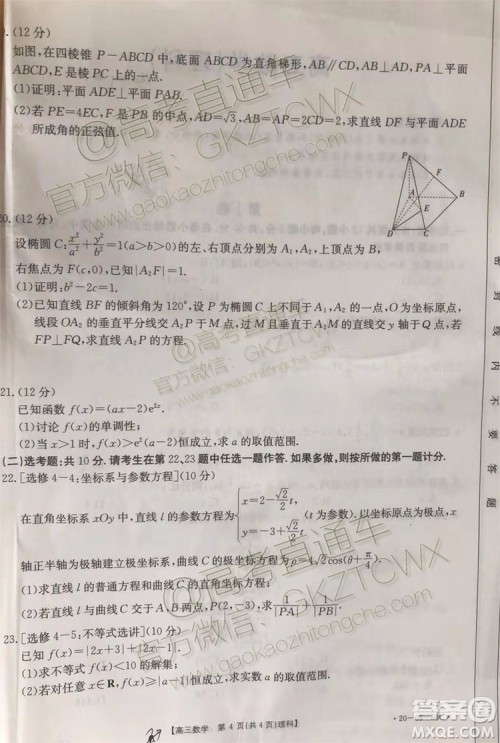 (12分)
如图,在四棱锥 P-ABCD 中,底面 ABCD 为直角梯形,AB∥CD,AB⊥AD,PA⊥平面
ABCD,E 是棱 PC 上的一点.
(1)证明:平面 ADE⊥平面 PAB.
(2)若 PE=4EC,F 是 PB 的中点,AD=√3,AB=AP=2CD=2,求直线 DF 与平面 ADE
所成角的正弦值.
P
F
A
B
E
D
C
20.(12分)
设椭圆 C:x²/a²+y²/b²=1(a>b>0)的左、右顶点分别为 A₁,A₂,上顶点为 B,
右焦点为 F(c,0),已知|A₂F|=1.
(1)证明:b²-2c=1.
(2)已知直线 BF 的倾斜角为 120°,设 P 为椭圆 C 上不同于 A₁,A₂ 的一点,O 为坐标原点,
线段 OA₂ 的垂直平分线交 A₂P 于 M 点,过 M 且垂直于 A₂M 的直线交 y 轴于 Q 点,若
FP⊥FQ,求直线 A₂P 的方程.
21.(12分)
已知函数 f(x)=(ax-2)e²ˣ.
(1)讨论 f(x)的单调性;
(2)当 x>1 时,f(x)>2(x²-x)恒成立,求 a 的取值范围.
(二)选考题:共 10 分.请考生在第 22,23 题中任选一题作答.如果多做,则按所做的第一题计分.
22.[选修 4-4:坐标系与参数方程](10分)
在直角坐标系 xOy 中,直线 l 的参数方程为{x=2-√2/2 t, y=-3+√2/2 t (t 为参数),以坐标原点为极点,x
轴正半轴为极轴建立极坐标系,曲线 C 的极坐标方程为 ρ=4√2cos(θ+π/4).
(1)求直线 l 的普通方程和曲线 C 的直角坐标方程;
(2)若直线 l 与曲线 C 交于 A,B 两点,P(2,-3),求 1/|PA|+1/|PB|.
23.[选修 4-5:不等式选讲](10分)
已知 f(x)=2|x+3|+|2x-1|.
(1)求不等式 f(x)<10 的解集;
(2)若对任意 x∈R,不等式恒成立,求实数的取值范围.
【高三数学 第 4 页(共 4 页)理科】
密封线内不要答题
@高考直通车
官方微信:GKZTCWX
www.gaokaozhitongche.com